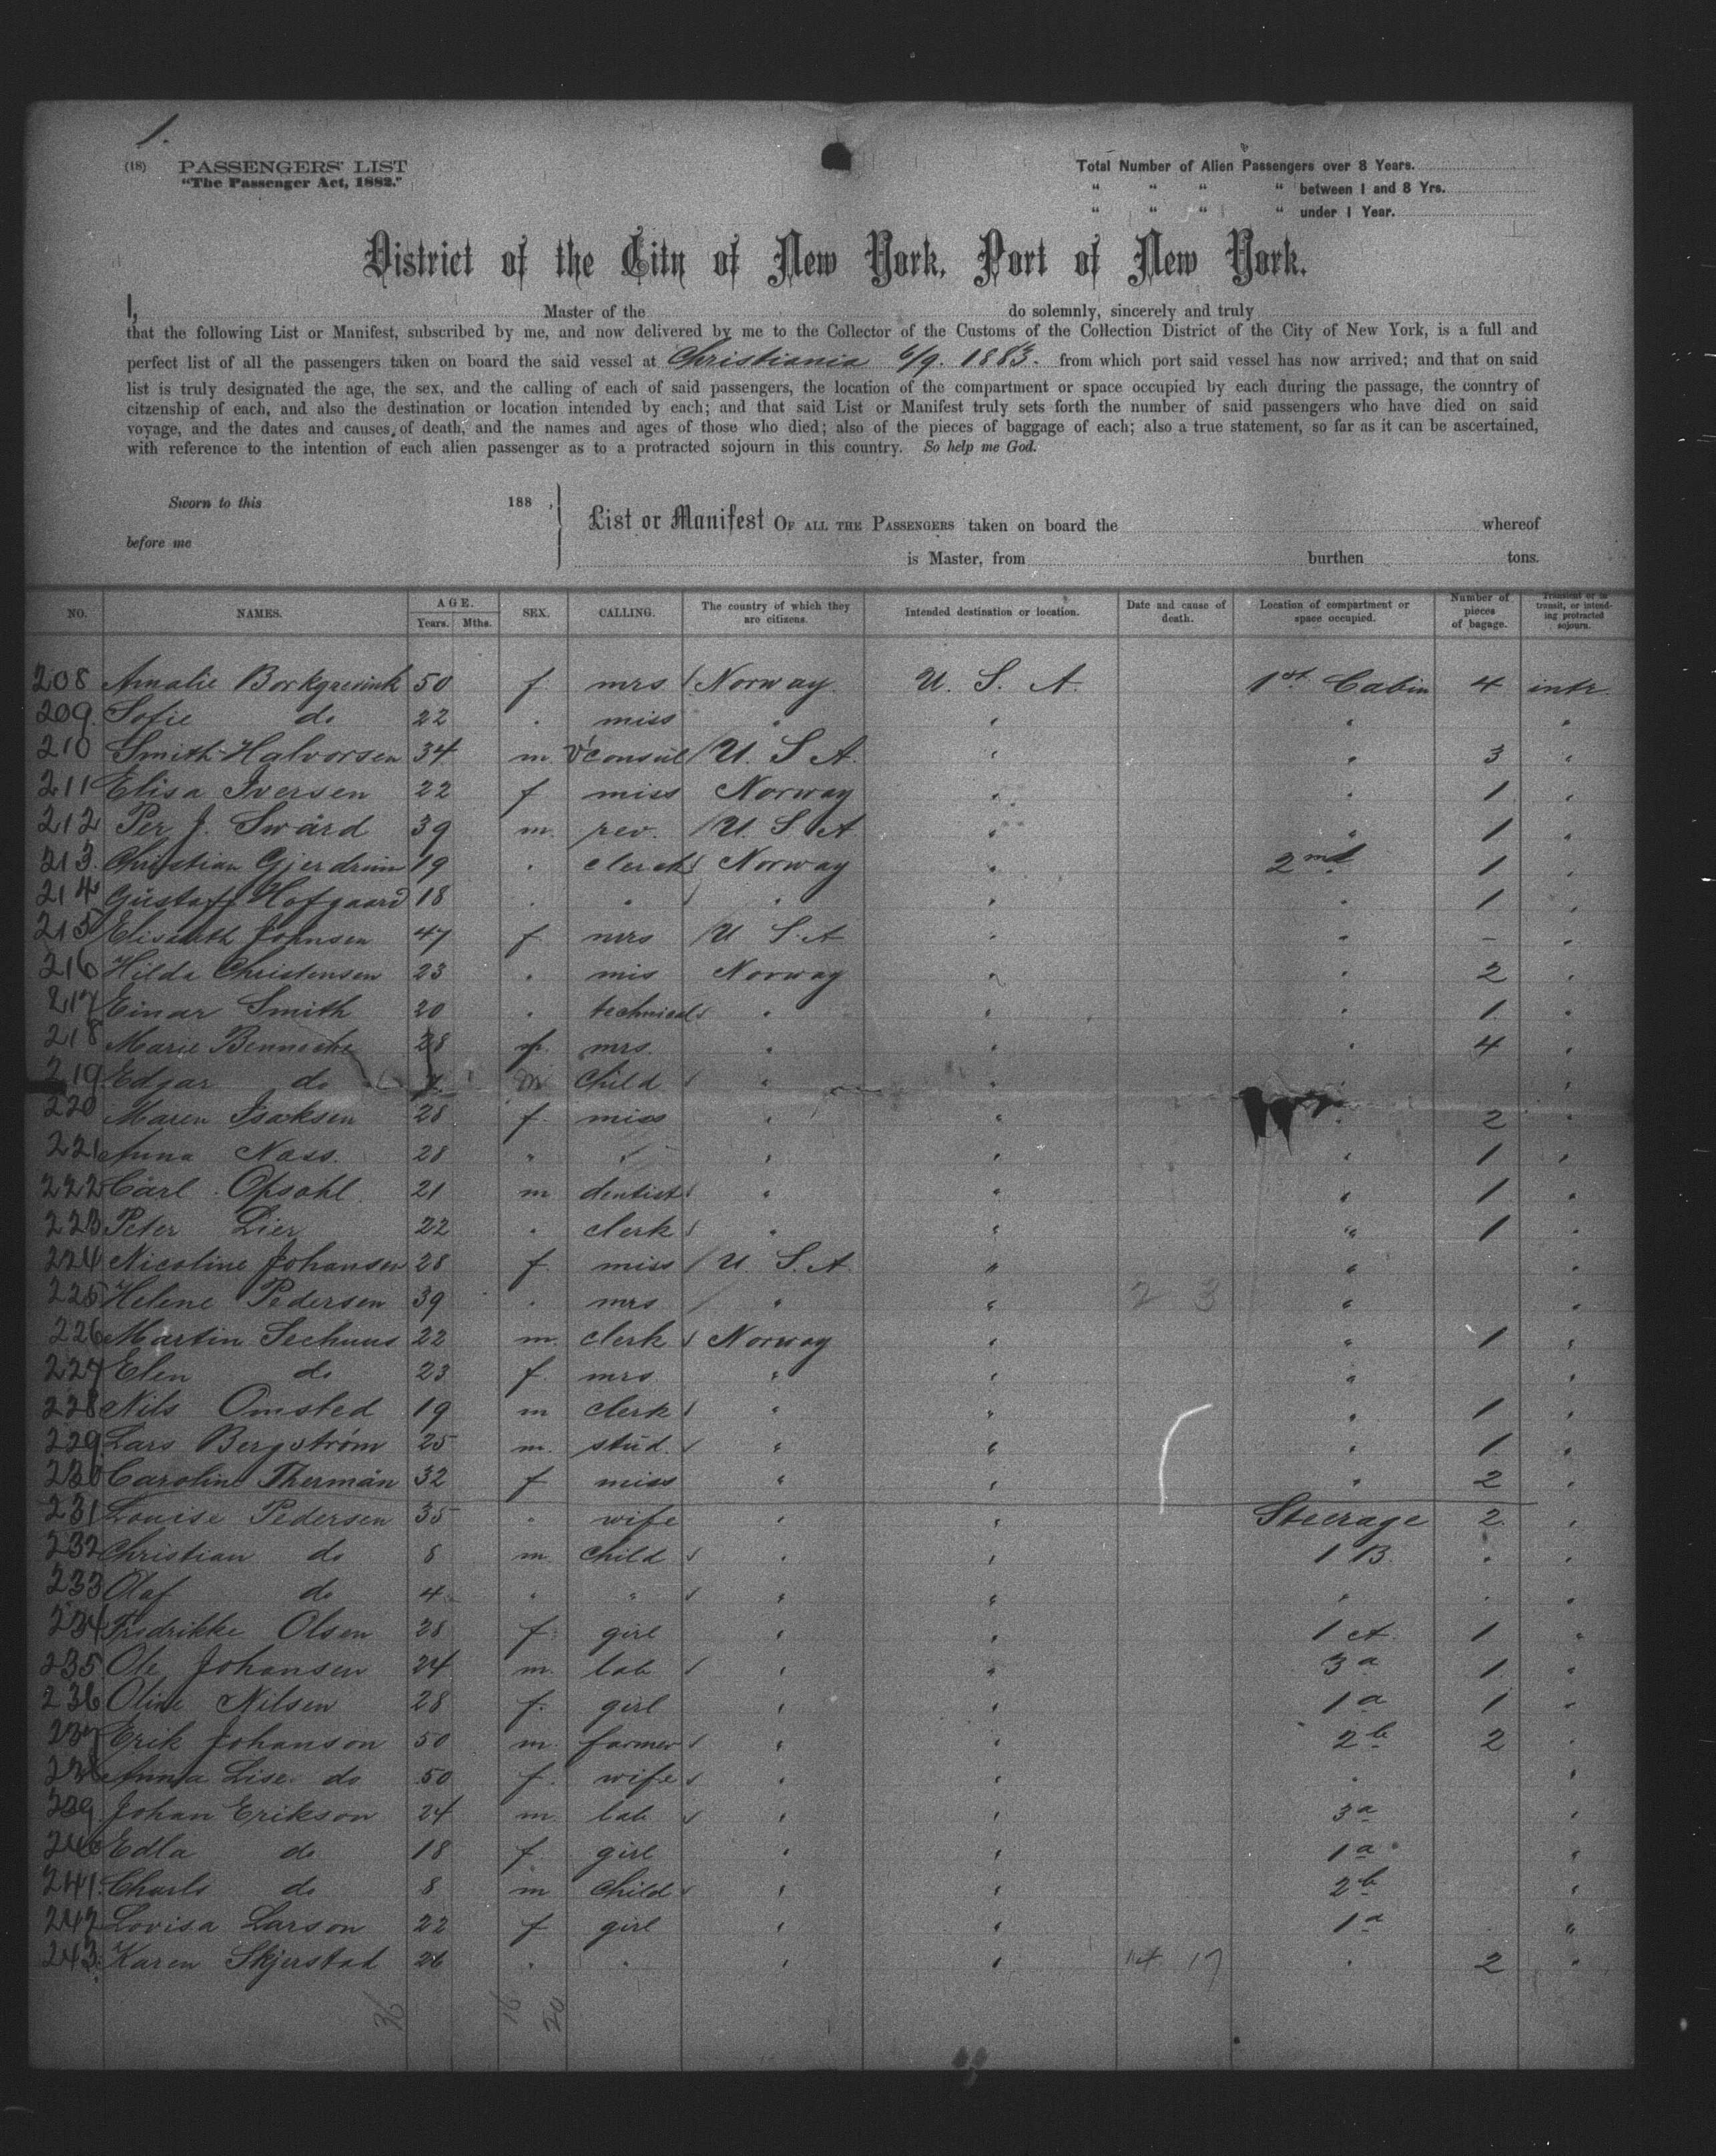 1.
(18) PASSENGERS' LIST
"The Passenger Act, 1882."
Total Number of Alien Passengers over 8 Years.
" " " " between 1 and 8 Yrs.
" " " " under 1 Year.
District of the City of New York, Port of New York.
I, Master of the do solemnly, sincerely and truly
that the following List or Manifest, subscribed by me, and now delivered by me to the Collector of the Customs of the Collection District of the City of New York, is a full and
perfect list of all the passengers taken on board the said vessel at Christiania 6/9. 1883. from which port said vessel has now arrived; and that on said
list is truly designated the age, the sex, and the calling of each of said passengers, the location of the compartment or space occupied by each during the passage, the country of
citzenship of each, and also the destination or location intended by each; and that said List or Manifest truly sets forth the number of said passengers who have died on said
voyage, and the dates and causes of death, and the names and ages of those who died; also of the pieces of baggage of each; also a true statement, so far as it can be ascertained,
with reference to the intention of each alien passenger as to a protracted sojourn in this country. So help me God.
Sworn to this 188 ,
before me
List or Manifest OF ALL THE PASSENGERS taken on board the whereof
is Master, from burthen tons.
NO. NAMES. AGE. Years. Mths. SEX. CALLING. The country of which they are citizens. Intended destination or location. Date and cause of death. Location of compartment or space occupied. Number of pieces of bagage. Transient or in transit, or intending protracted sojourn.
208 Amalie Borkgrevink 50 f. mrs Norway U. S. A. 1st Cabin 4 intr.
209. Sofie do 22 " miss " " " "
210 Smith-Halvorsen 34 m. V'consul U. S. A. " " 3 "
211 Elisa Iversen 22 f miss Norway " " 1 "
212 Per J. Swärd 39 m. rev. U. S. A " " 1 "
213. Christian Gjerdrum 19 " clerck Norway " 2nd 1 "
214 Gustaff Hofgaard 18 " " " " " 1 "
215 Elisabth Johnsen 47 f mrs U. S. A " " – "
216 Hilda Christensen 23 " mis Norway " " 2 "
217 Einar Smith 20 " technical " " " 1. "
218 Marie Benneche 28 f. mrs. " " " 4 "
219 Edgar do m child " " " "
220 Maren Isaksen 28 f. miss " " " 2 "
221 Anna Nass. 28 " " " " " 1 "
222 Carl Opsahl 21 m dentist " " " 1 "
223 Peter Lier 22 " clerk " " " 1 "
224 Nicoline Johansen 28 f miss U. S. A. " " "
225 Helene Pedersen 39 " mrs " " 2 3 " "
226 Martin Sechuus 22 m. clerk Norway " " 1 "
227 Elen do 23 f. mrs " " " "
228 Nils Omsted 19 m clerk " " " 1 "
229 Lars Bergström 25 m. stud. " " " 1 "
230 Caroline Thermän 32 f miss " " " 2 "
231 Louise Pedersen 35 " wife " " Steerage 2. "
232 Christian do 8 m. child " " 1 B. " "
233 Olaf do 4 " " " " " " "
234 Fredrikke Olsen 28 f. girl " " 1 A. 1 "
235 Ole Johansen 24 m. lab " " 3 a 1. "
236 Oline Nilsen 28 f. girl " " 1 a 1 "
237 Erik Johanson 50 m. farmer " " 2 b 2 "
238 Anna Lise do 50 f. wife " " " "
239. Johan Erikson 24 m. lab " " 3 a "
240 Edla do 18 f girl " " 1 a "
241. Charls do 8 m child " " 2 b "
242 Lovisa Larson 22 f girl " " 1 a "
243. Karen Skjerstad 26 " " " " 14 17 " 2 "
36 16 20